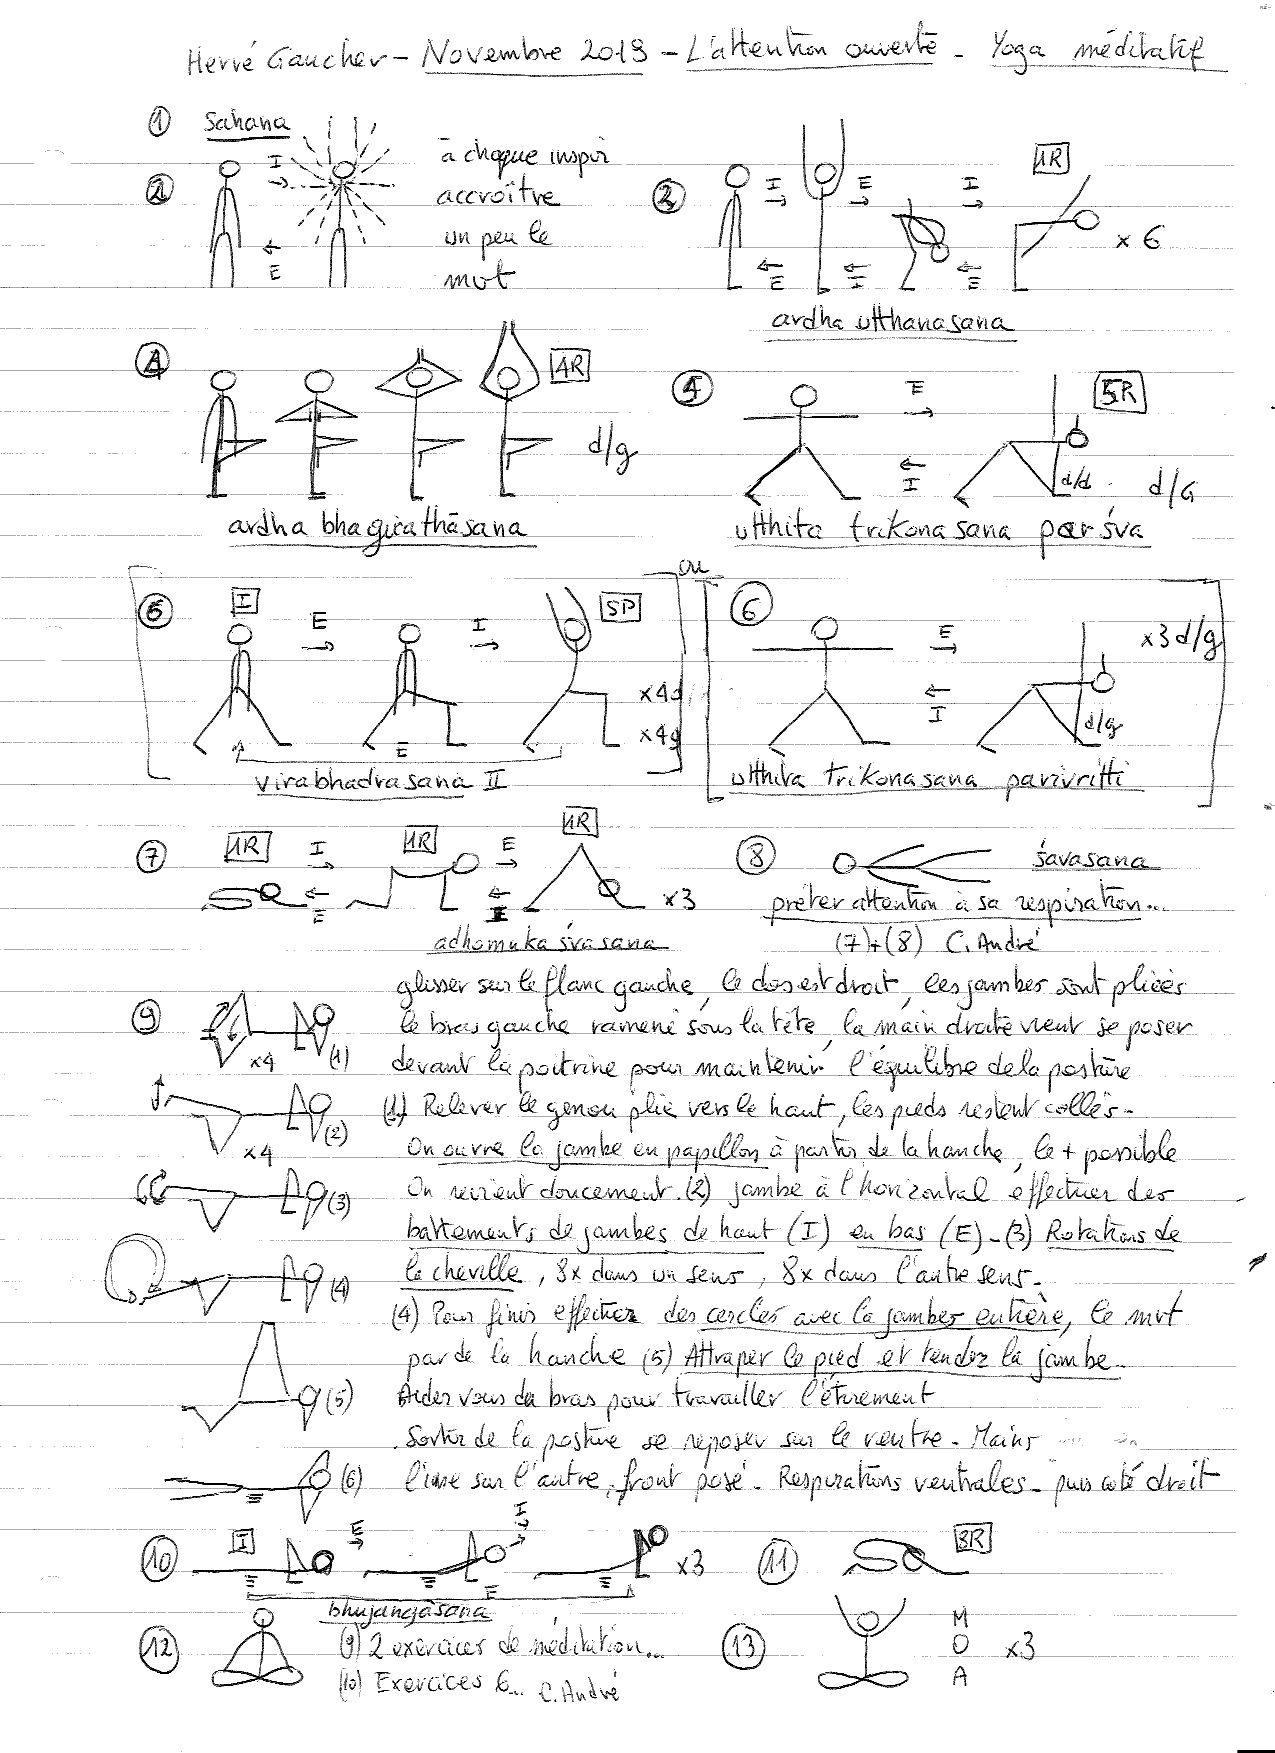 Hervé Gaucher - Novembre 2019 - L'attention ouverte - Yoga méditatif
① Sahana
I
E
à chaque inspir
accroître
un peu le
mvt
②
I E I 1R
E I E
x 6
ardha utthanasana
4R
d/g
ardha bhagirathāsana
E 5R
I
d/d
d/G
utthita trikonasana parśva
ou
I E I 5P
x4d
x4g
E
virabhadrasana II
⑥
E
I
x3 d/g
d/g
utthita trikonasana parivritti
⑦ 1R I 1R E 1R
E
x3
adhomuka śvasana
⑧ śavasana
prêter attention à sa respiration...
(7)+(8) C. André
glisser sur le flanc gauche, le dos est droit, les jambes sont pliées
⑨ x4 (1) le bras gauche ramené sous la tête, la main droite vient se poser
devant la poitrine pour maintenir l'équilibre de la posture
x4 (2) (1) Relever le genou plié vers le haut, les pieds restent collés-
On ouvre la jambe en papillon à partir de la hanche, le + possible
(3) On revient doucement. (2) jambe à l'horizontal effectuer des
battements de jambes de haut (I) en bas (E) - (3) Rotations de
(4) la cheville, 8x dans un sens, 8x dans l'autre sens-
(4) Pour finir effectuez des cercles avec la jambes entière, le mvt
par de la hanche (5) Attraper le pied et tendez la jambe-
(5) Aidez vous du bras pour travailler l'étirement
Sortir de la posture se reposer sur le ventre - Mains
(6) l'une sur l'autre, front posé - Respirations ventrales - puis coté droit
⑩ I E I
E
x3
bhujangāsana
⑪ 3R
⑫ (9) 2 exercices de méditation...
(10) Exercices 6... C. André
⑬ M
O
A
x3